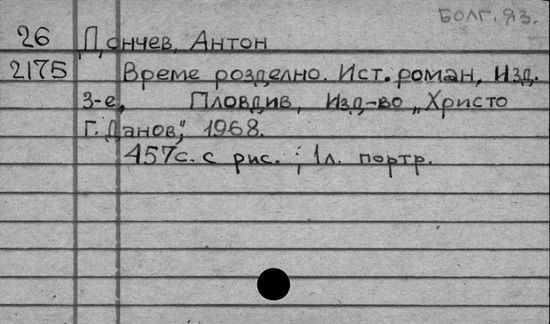 БОЛГ. ЯЗ.
26 Дончев, Антон
2175 Време розделно. Ист. роман, Изд.
3-е, Пловдив, Изд-во „Христо
Г. Данов", 1968.
457с. с рис. ; 1л. портр.